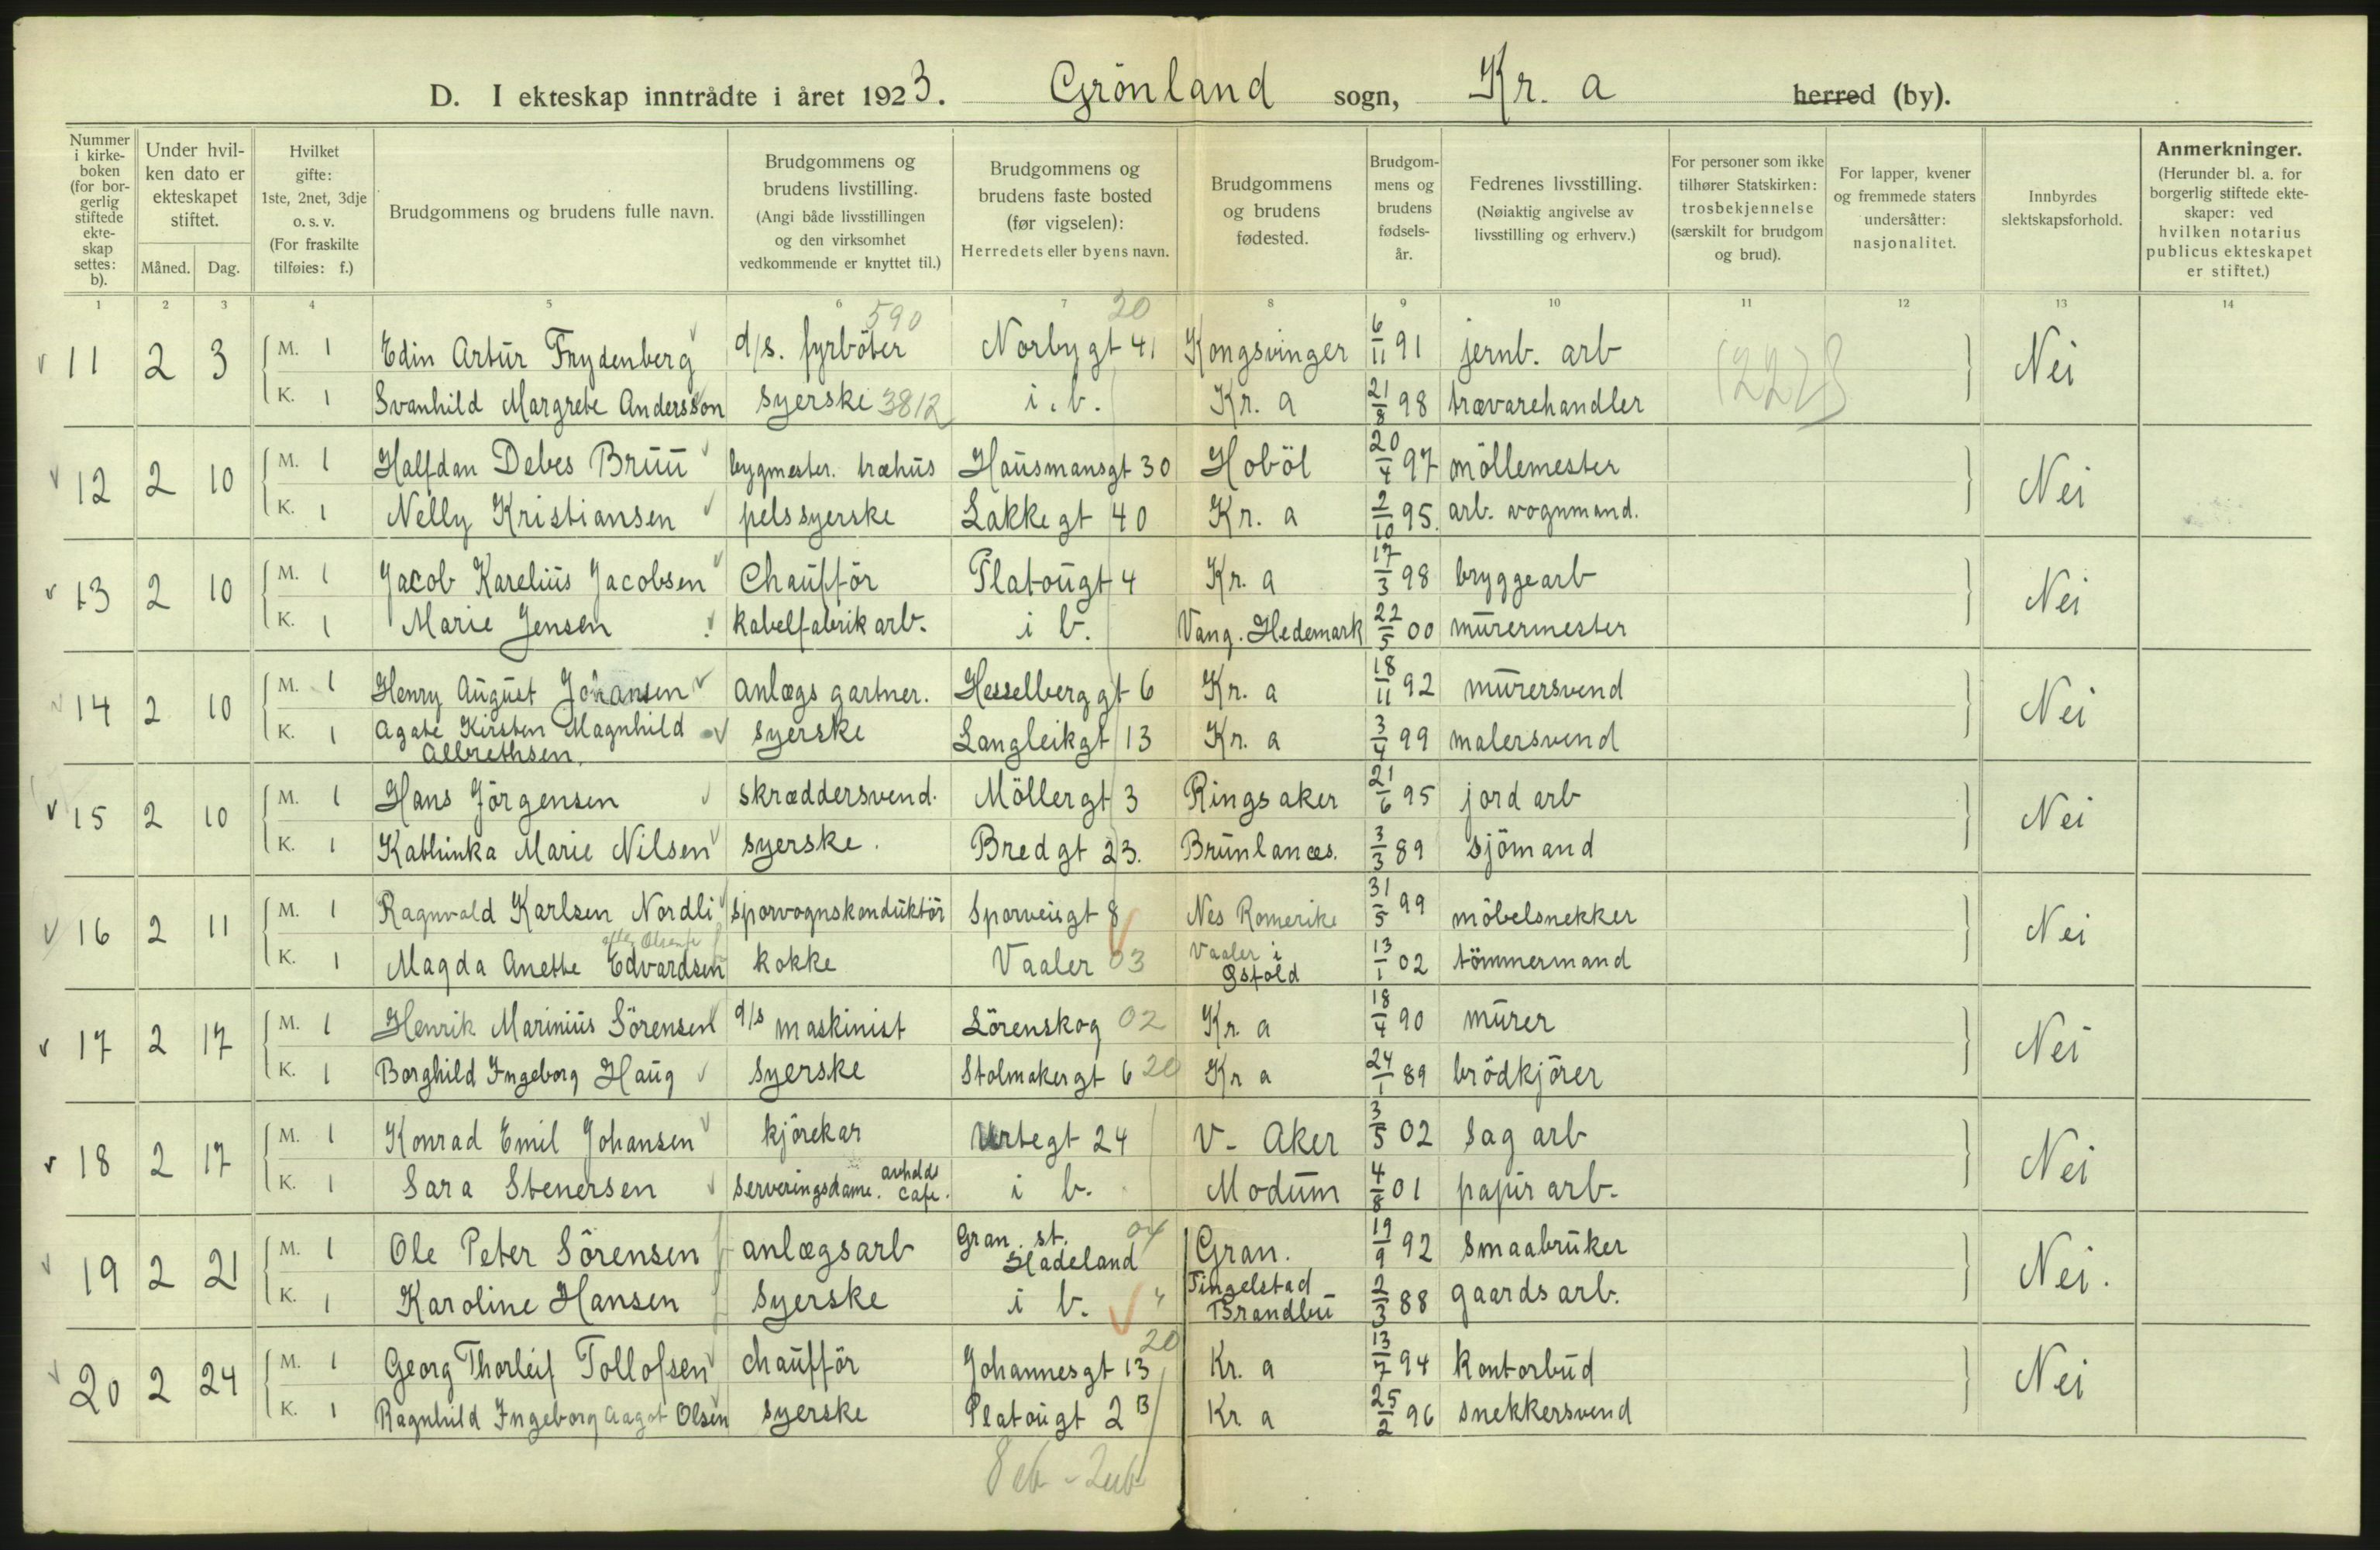 D. I ekteskap inntrådte i året 1923. Grönland sogn, Kr. a herred (by).
Nummer i kirkeboken (for borgerlig stiftede ekteskap settes: b). | Under hvilken dato er ekteskapet stiftet. Måned. Dag. | Hvilket gifte: 1ste, 2net, 3dje o. s. v. (For fraskilte tilføies: f.) | Brudgommens og brudens fulle navn. | Brudgommens og brudens livstilling. (Angi både livsstillingen og den virksomhet vedkommende er knyttet til.) | Brudgommens og brudens faste bosted (før vigselen): Herredets eller byens navn. | Brudgommens og brudens fødested. | Brudgommens og brudens fødselsår. | Fedrenes livsstilling. (Nøiaktig angivelse av livsstilling og erhverv.) | For personer som ikke tilhører Statskirken: trosbekjennelse (særskilt for brudgom og brud). | For lapper, kvener og fremmede staters undersåtter: nasjonalitet. | Innbyrdes slektskapsforhold. | Anmerkninger. (Herunder bl. a. for borgerlig stiftede ekteskaper: ved hvilken notarius publicus ekteskapet er stiftet.)
1 2 3 4 5 6 7 8 9 10 11 12 13 14
590 20
11 2 3 M. 1 Edin Artur Frydenberg d/s. fyrböter Norbygt 41 Kongsvinger 6/11 91 jernb. arb Nei
K. 1 Svanhild Margrete Andersson syerske 3812 i. b. Kr. a 21/8 98 trævarehandler
12 2 10 M. 1 Halfdan Debes Bruu bygmester. træhus Hausmansgt 30 Hoböl 20/4 97 möllemester Nei
K. 1 Nelly Kristiansen pelssyerske Lakkegt 40 Kr. a 2/10 95. arb. vognmand.
13 2 10 M. 1 Jacob Karelius Jacobsen Chaufför Platougt 4 Kr. a 17/3 98 bryggearb Nei
K. 1 Marie Jensen kabelfabrik arb. i b. Vang. Hedemark 22/5 00 murermester
14 2 10 M. 1 Henry August Johansen anlægs gartner. Hesselberggt 6 Kr. a 18/11 92 murersvend Nei
K. 1 Agate Kirsten Magnhild Albrethsen. syerske Langleikgt 13 Kr. a 3/4 99 malersvend
15 2 10 M. 1 Hans Jörgensen skræddersvend. Möllergt 3 Ringsaker 21/6 95 jord arb Nei
K. 1 Kathinka Marie Nilsen syerske. Bredgt 23. Brunlanæs. 3/3 89 sjömand
16 2 11 M. 1 Ragnvald Karlsen Nordli sporvognskonduktör Sporveisgt 8 Nes Romerike 31/5 99 möbelsnekker Nei
K. 1 Magda Anette Edvardsen kokke Vaaler 03 Vaaler i Østfold 13/1 02 tömmermand
17 2 17 M. 1 Henrik Marinius Sörensen d/s maskinist Lörenskog 02 Kr. a 18/4 90 murer Nei
K. 1 Borghild Ingeborg Haug syerske Stolmakergt 6 20 Kr a 24/1 89 brödkjörer
18 2 17 M. 1 Konrad Emil Johansen kjörekar Urtegt 24 V. Aker 3/5 02 Sag arb Nei
K. 1 Sara Stenersen Serveringsdame. avholds cafe. i b. Modum 4/8 01 papir arb.
19 2 21 M. 1 Ole Peter Sörensen anlægsarb Gran. st. Hadeland 04 Gran. 19/9 92 Smaabruker Nei.
K. 1 Karoline Hansen Syerske i b. " Tingelstad Brandbu 2/3 88 gaards arb.
20 2 24 M. 1 Georg Thorleif Tollofsen chaufför Johannesgt 13 20 Kr. a 13/7 94 kontorbud Nei
K. 1 Ragnhild Ingeborg Aagot Olsen syerske Platougt 2 B Kr a 25/2 96 snekkersvend